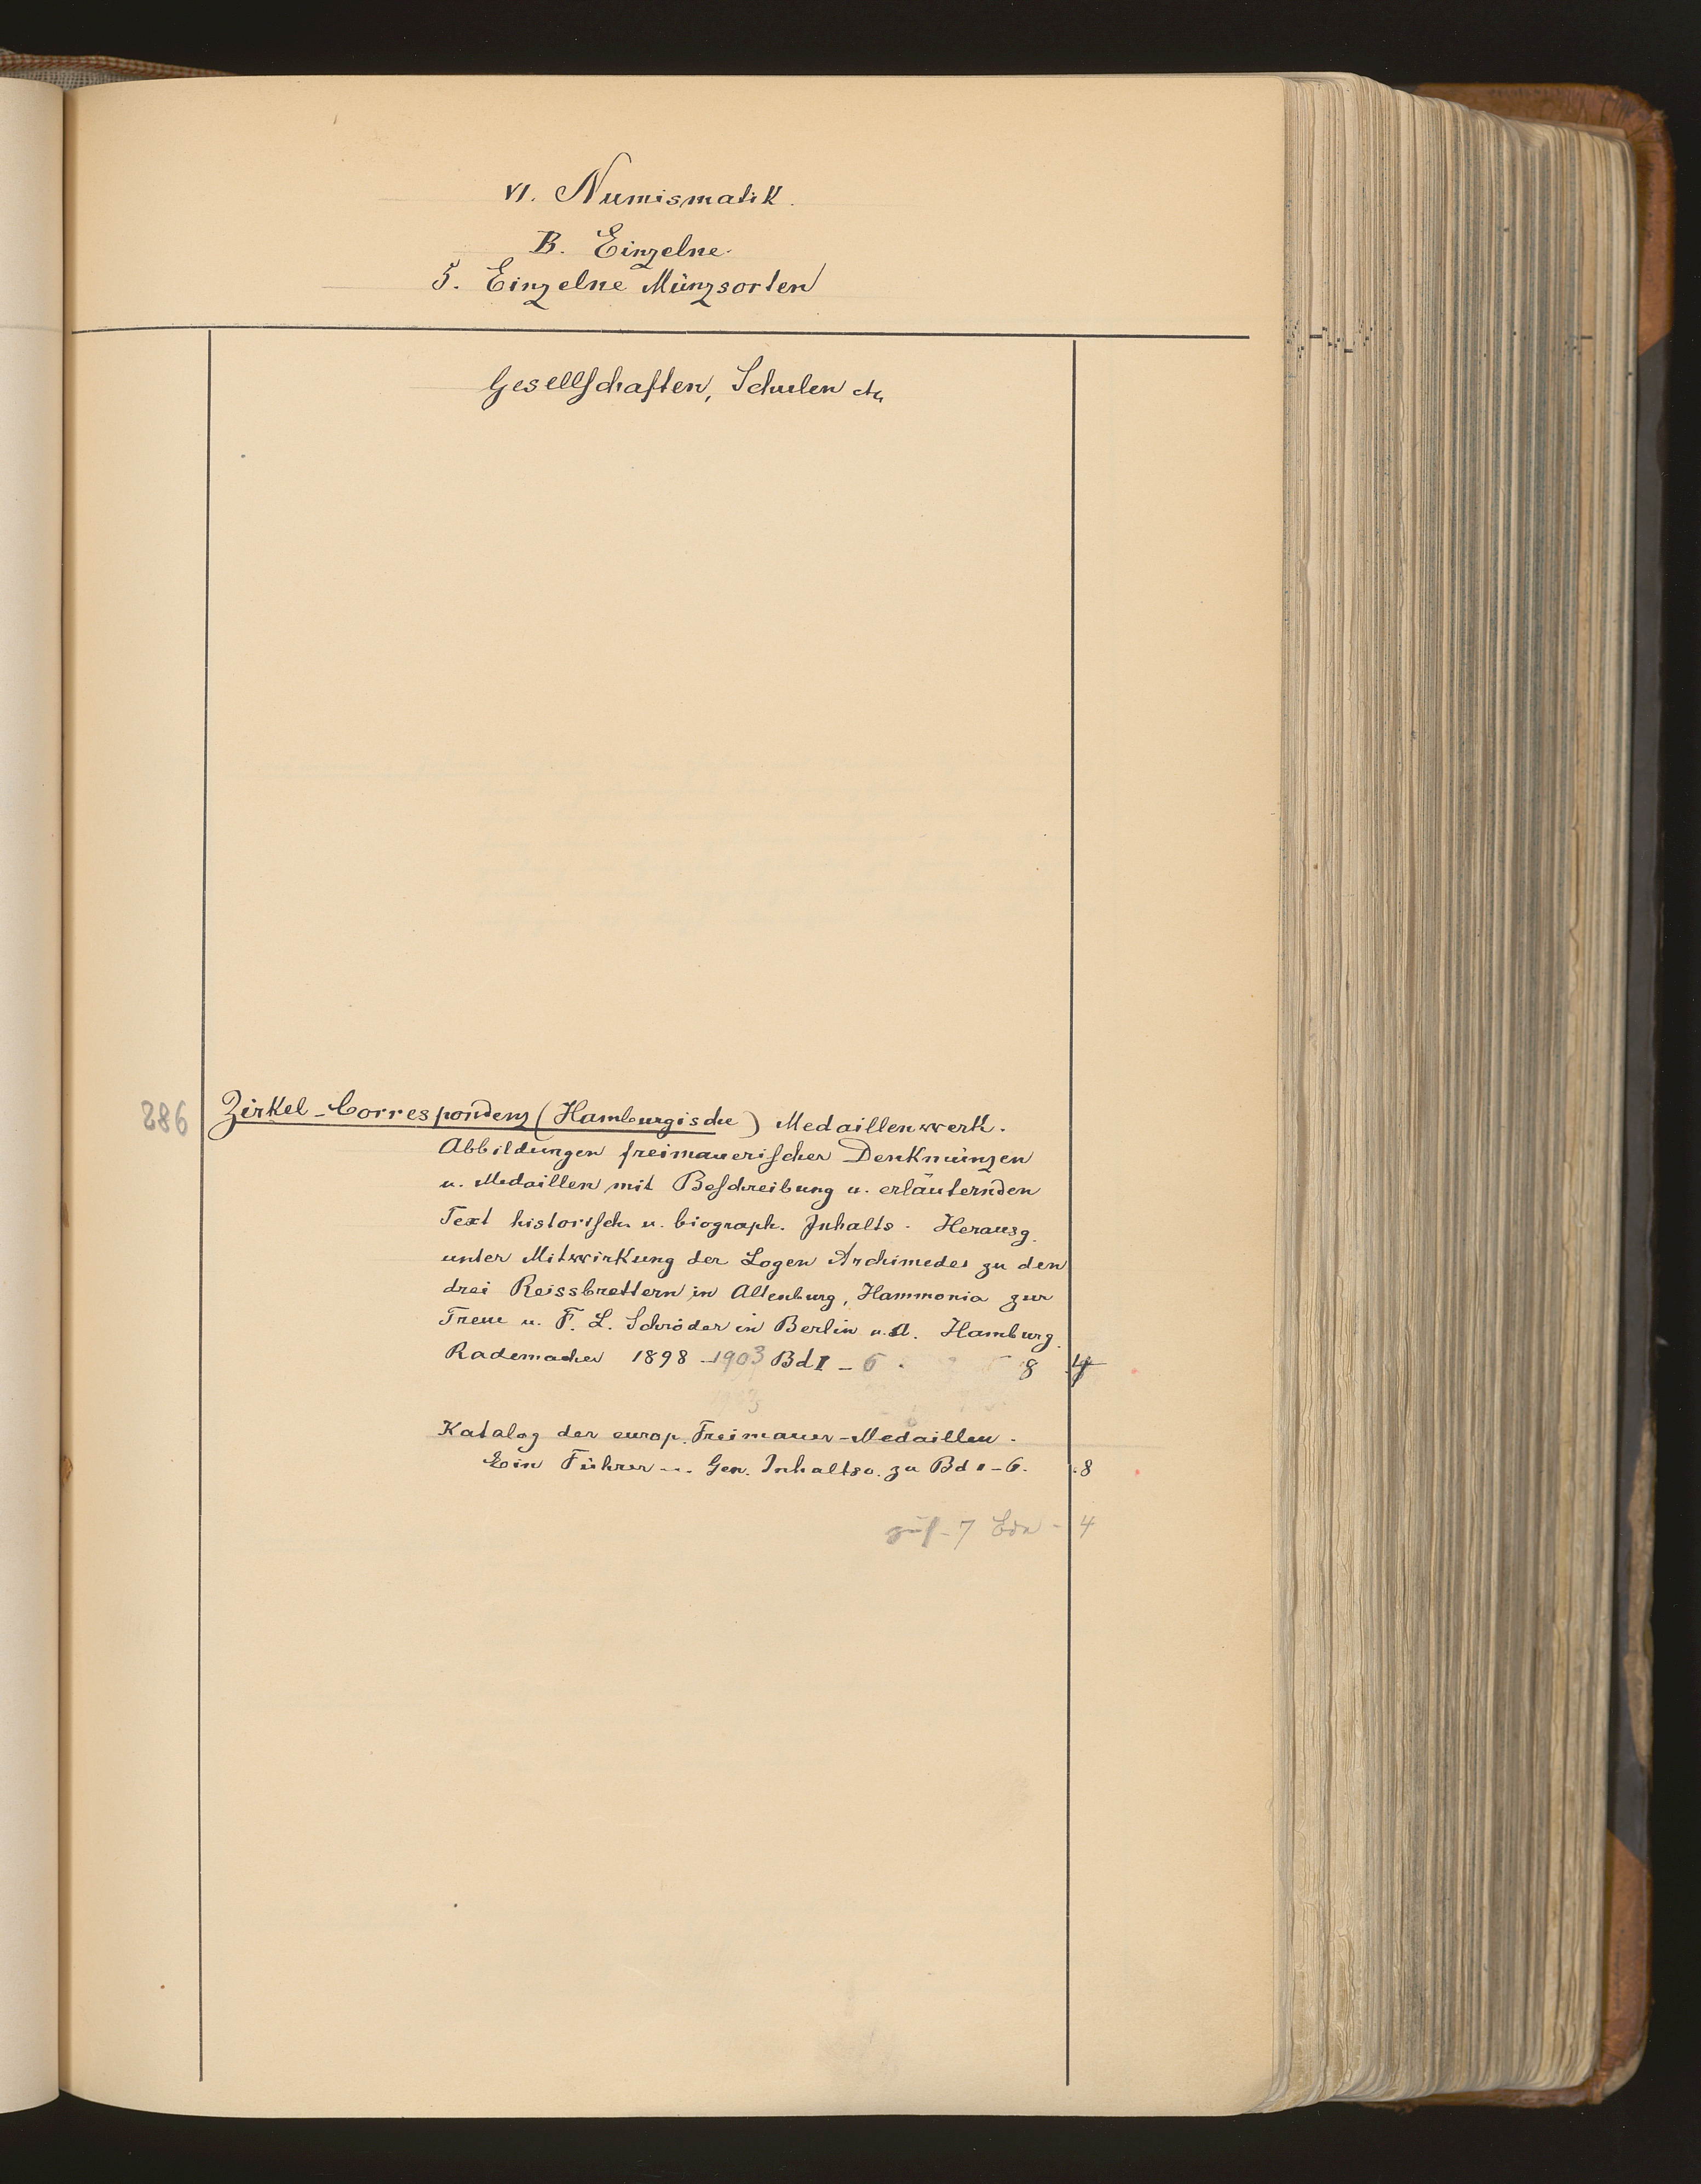 VI. Numismatik.
B. Einzelne.
5. Einzelne Münzsorten
Gesellschaften, Schulen etc
286
Zirkel-Correspondenz (Hamburgische) Medaillenwerk.
Abbildungen freimauerischer Denkmünzen
u. Medaillen mit Beschreibung u. erläuternden
Text historisch. u. biograph. Inhalts. Herausg.
unter Mitwirkung der Logen Archimedes zu den
drei Reissbrettern in Altenburg, Hammonia zur
Treue u. F. L. Schröder in Berlin u. A. Hamburg.
Rademacher 1898-1903 Bd I-6. 8 4
Katalog der europ. Freimaurer-Medaillen.
Ein Führer... Gen. Inhaltsv. zu Bd 1-6. 8
7 4